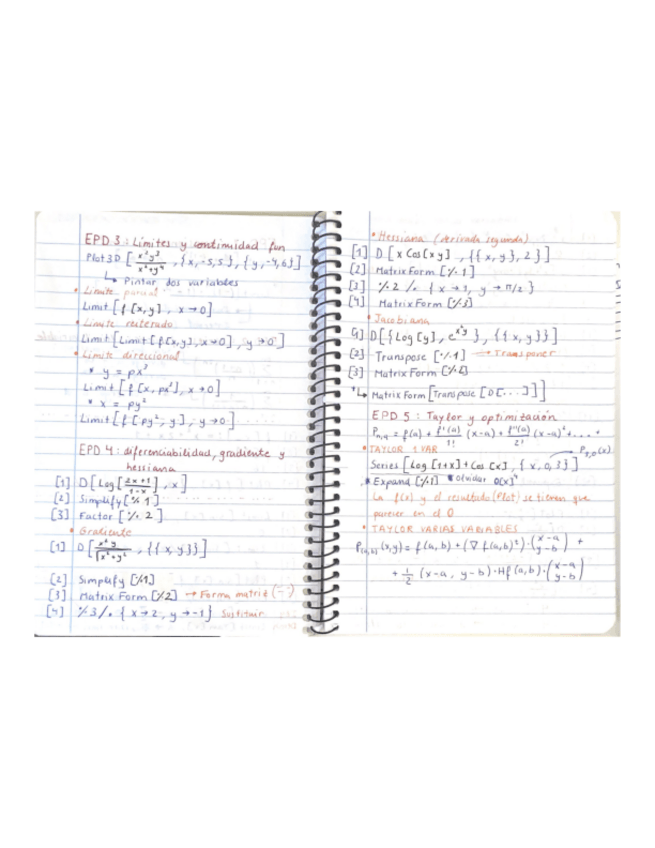 EPD 3: Límites y continuidad fun
Plot3D [ x²y³/(x²+y⁴) , {x,-5,5}, {y,-4,6} ]
↳ Pintar dos variables
• Límite parcial
Limit [ f[x,y] , x→0 ]
• Límite reiterado
Limit [ Limit [ f[x,y], x→0 ] , y→0 ]
• Límite direccional
* y = px²
Limit [ f[x, px²], x→0 ]
* x = py²
Limit [ f[py², y], y→0 ]
EPD 4: diferenciabilidad, gradiente y
hessiana
[1] D [ Log [ (2x+1)/(1-x) ] , x ]
[2] Simplify [%1]
[3] Factor [%2]
• Gradiente
[1] D [ x²y/√(x²+y²) , {{x,y}} ]
[2] Simplify [%1]
[3] MatrixForm [%2] → Forma matriz (- -)
[4] %3 /. {x→2, y→-1} Sustituir
• Hessiana (derivada segunda)
[1] D [ x Cos[xy] , {{x,y},2} ]
[2] MatrixForm [%1]
[3] %2 /. {x→1, y→π/2}
[4] MatrixForm [%3]
• Jacobiana
[1] D [ {Log[y], e^(x²y)}, {{x,y}} ]
[2] Transpose [%1] → Transponer
[3] MatrixForm [%2]
*↳ MatrixForm [ Transpose [ D[...] ] ]
EPD 5: Taylor y optimización
Pn,a = f(a) + f'(a)/1! (x-a) + f''(a)/2! (x-a)² + ...
• TAYLOR 1 VAR P3,0(x)
Series [ Log[1+x] + Cos[x], {x,0,3} ]
* Expand [%1] * Olvidar O[x]⁴
La f(x) y el resultado (Plot) se tienen que
parecer en el 0
• TAYLOR VARIAS VARIABLES
P(a,b) (x,y) = f(a,b) + (∇f(a,b)ᵗ)·(x-a y-b) +
+ 1/2 (x-a, y-b)·Hf(a,b)·(x-a y-b)